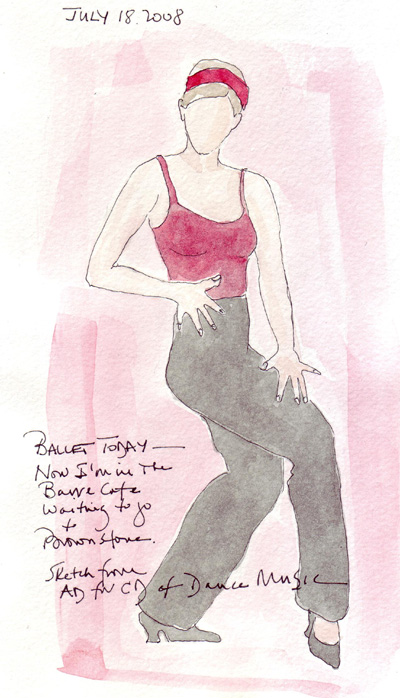 JULY 18.2008
BALLET TODAY —
Now I'm in The
Barre Cafe
Waiting to go
to
Brownstone.
Sketch from
AD for CD of Dance Music